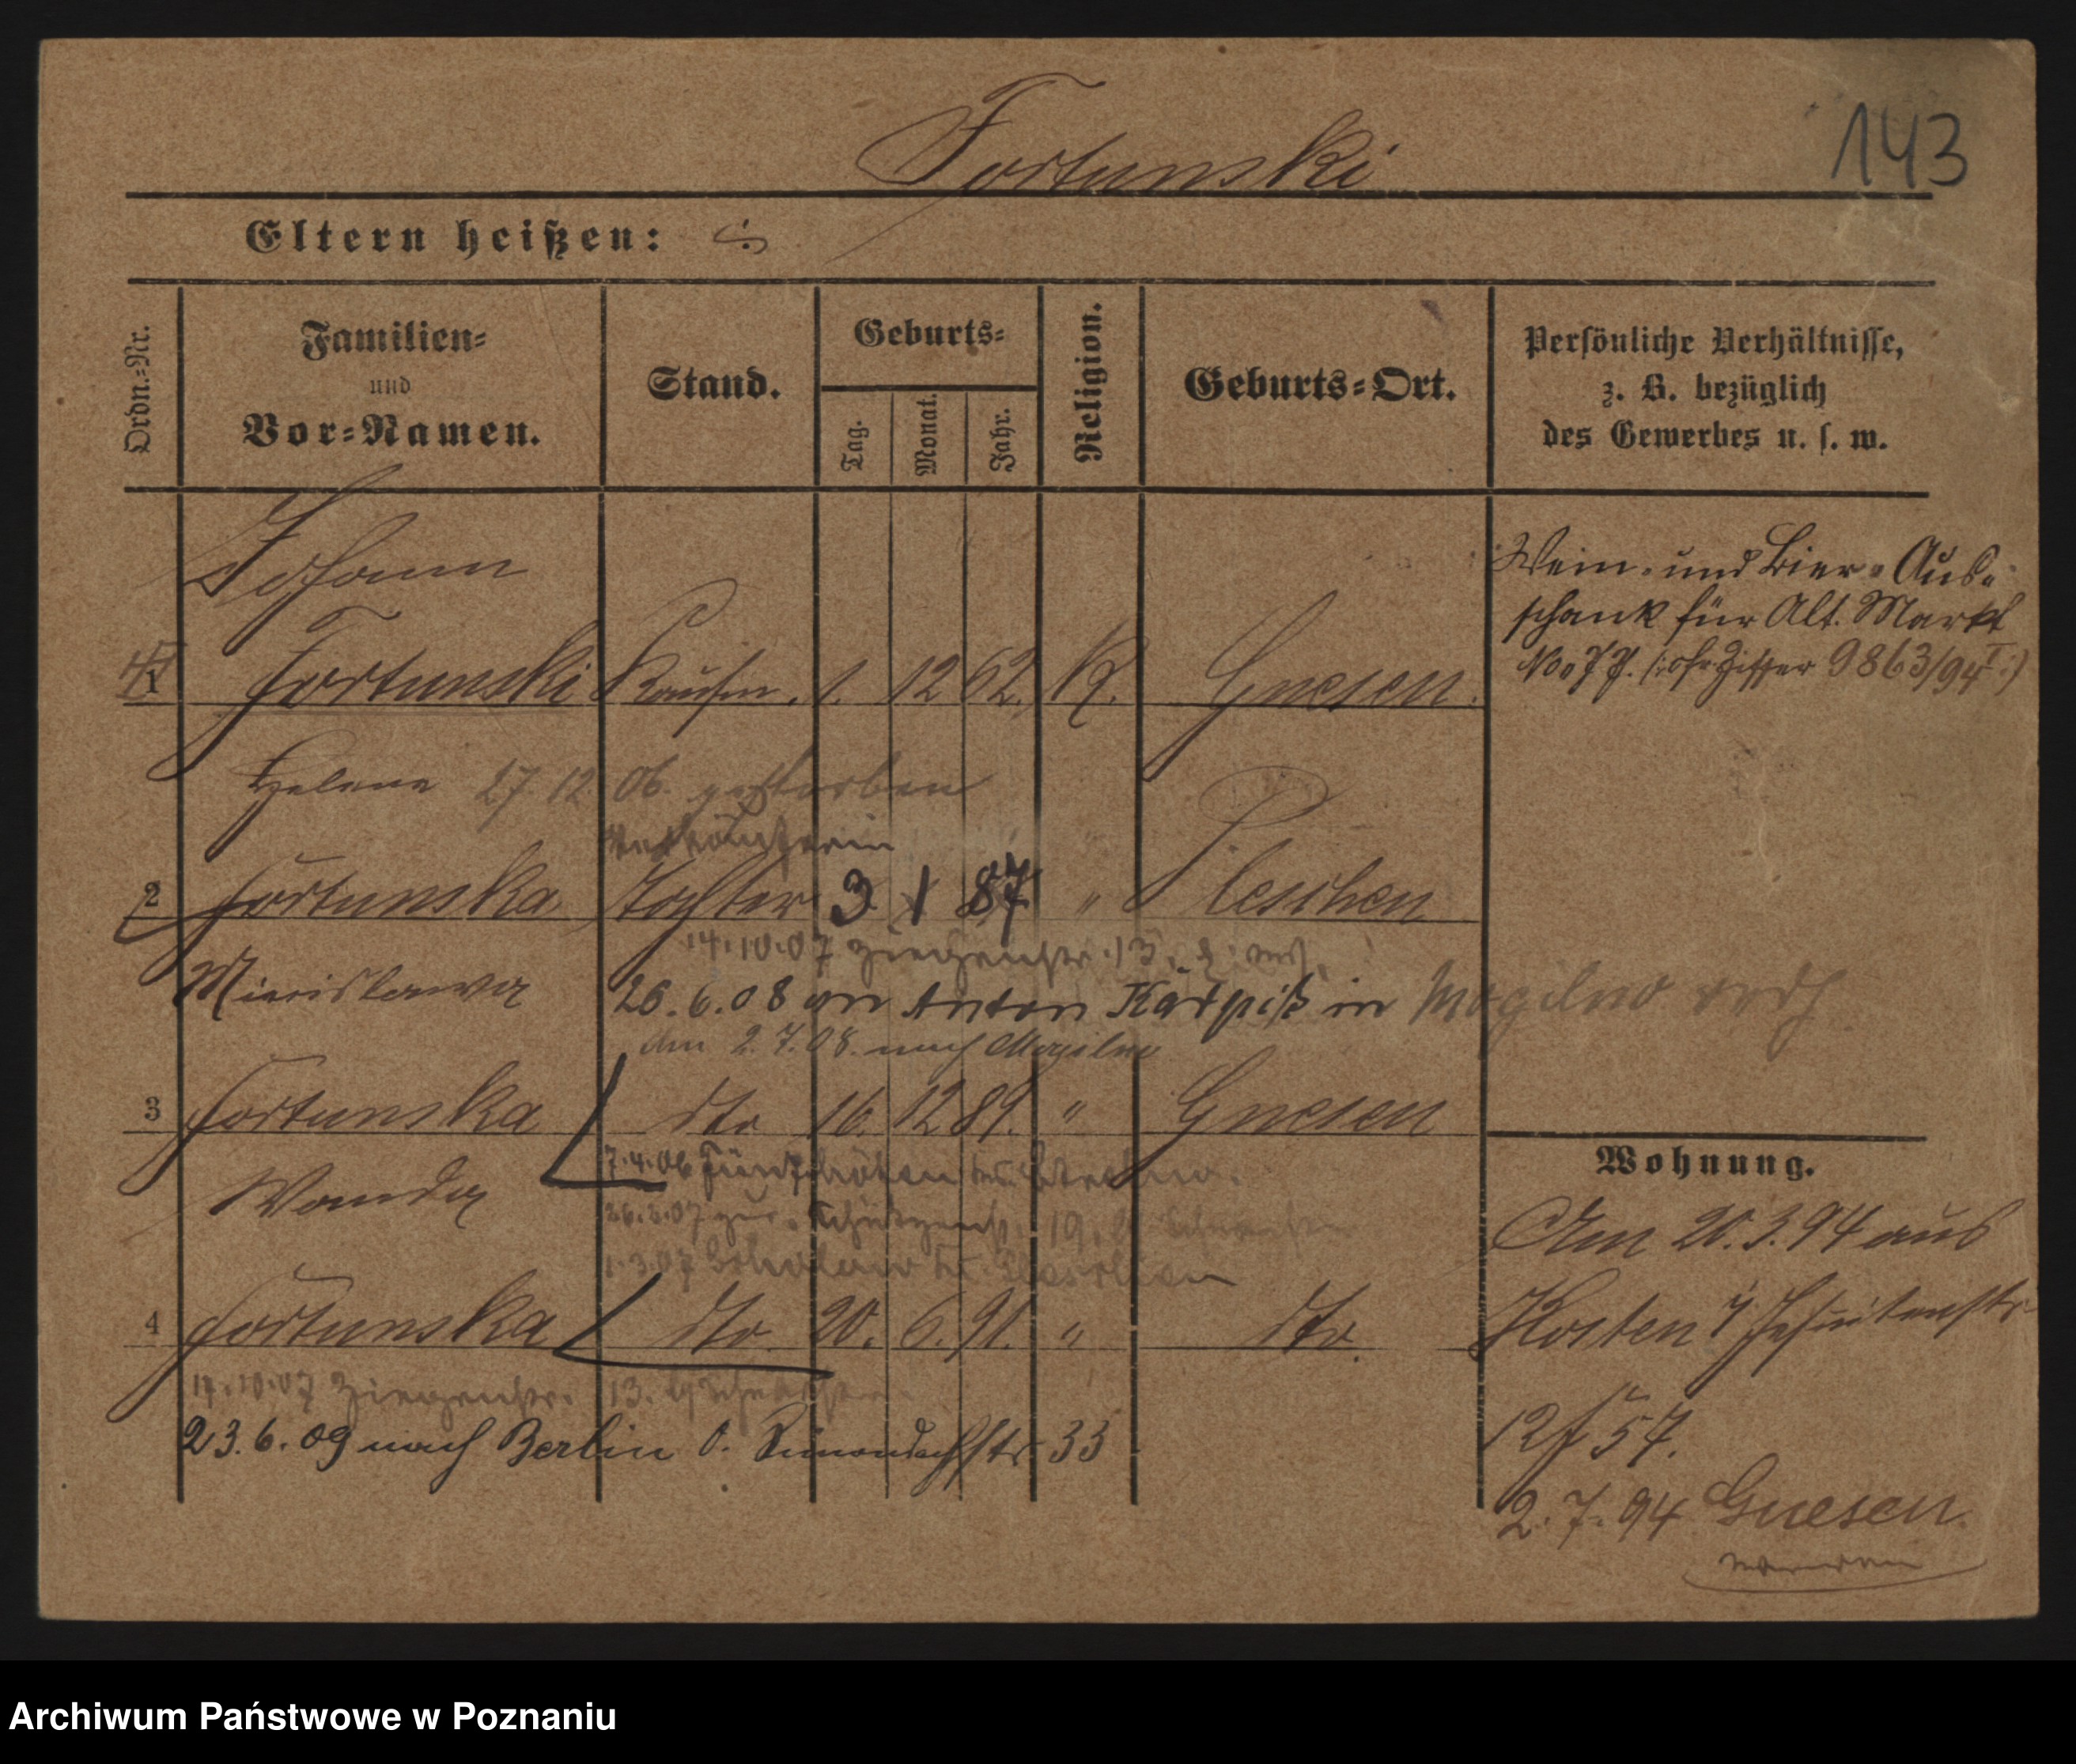 143
Fortunski
Eltern heißen:
Ordn.-Nr.
Familien-
und
Vor-Namen.
Stand.
Geburts-
Tag.
Monat.
Jahr.
Religion.
Geburts-Ort.
Persönliche Verhältnisse,
z. B. bezüglich
des Gewerbes u. s. w.
Johann
1 Fortunski Kaufm. 1. 12 62. K. Gnesen.
Wein- und Bier-Aus-
schank für Alt. Markt
No. 77. 9863/94 I
Helene 27. 12. 06. gestorben
Verkäuferin
2 Fortunska Tochter 3. 1 87 " Pleschen
14.10.07 Ziegenstr. 13.
Miecislawa 26. 6. 08 an Anton in Mogilno
am 2.7.08. nach Mogilno
3 Fortunska dto 16. 12 89. " Gnesen
7.4.06
Wanda
26.2.07 19.
1.3.07
4 Fortunska dto. 20. 6. 91. " dto.
14.10.07 Ziegenstr. 13.
23. 6. 09 nach Berlin O. Simondachstr 33
Wohnung.
Am 20.3.94 aus
Kosten Jesuitenstr
12 f 57.
2. 7. 94 Gnesen.
Archiwum Państwowe w Poznaniu